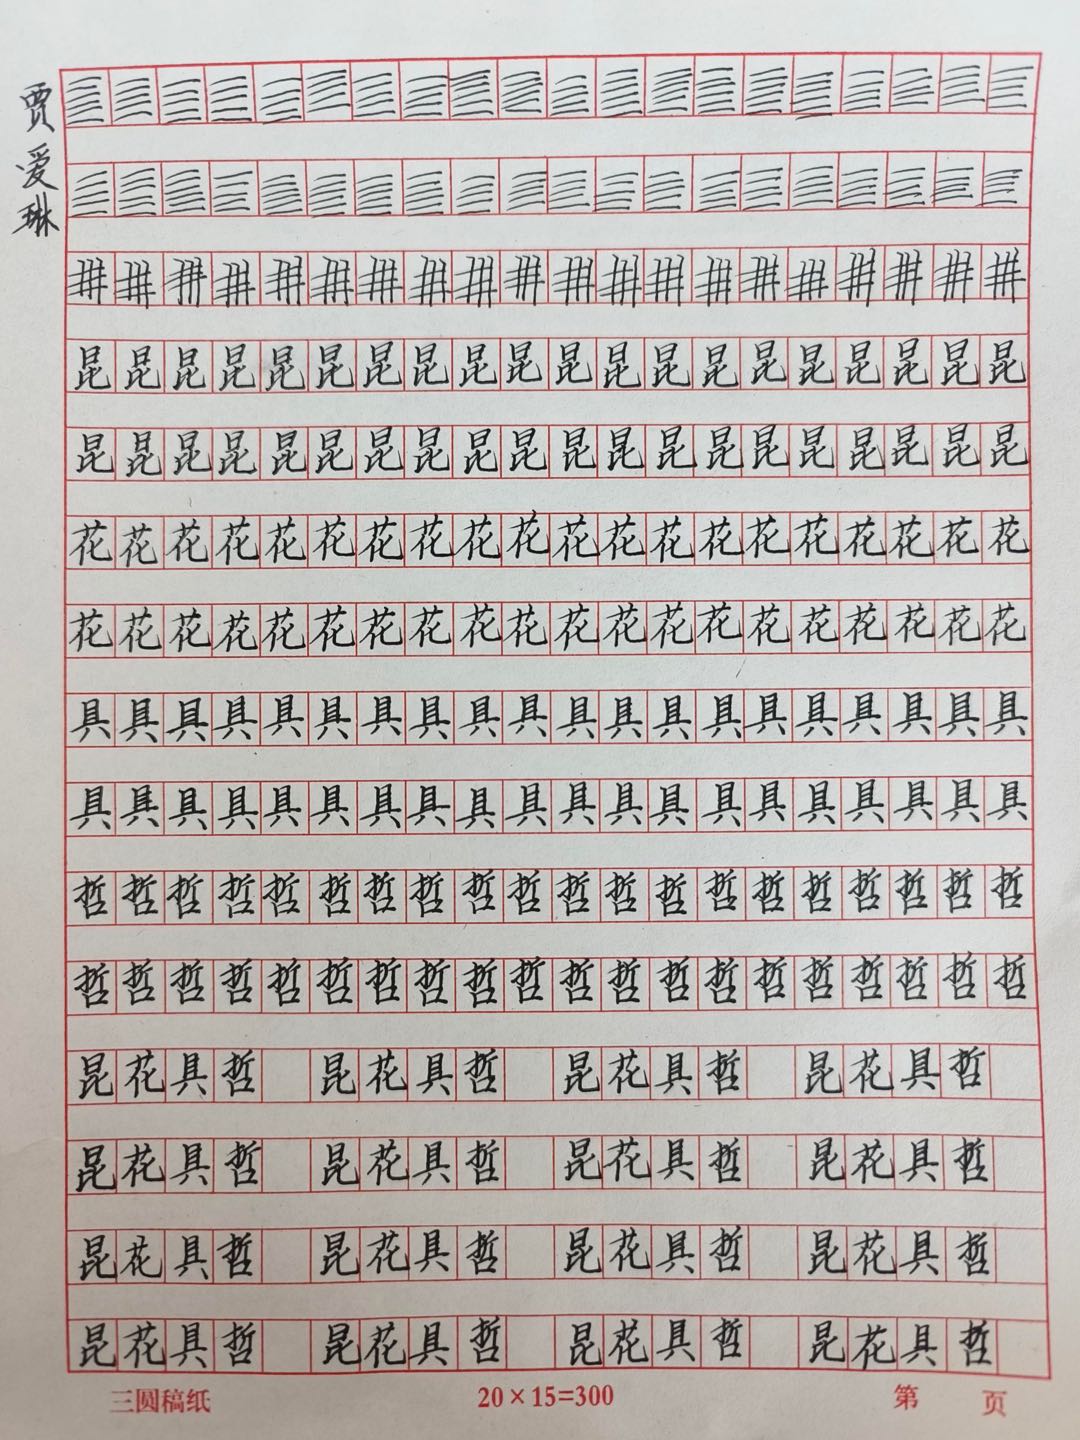 贾爱琳
昆昆昆昆昆昆昆昆昆昆昆昆昆昆昆昆昆昆昆昆
昆昆昆昆昆昆昆昆昆昆昆昆昆昆昆昆昆昆昆昆
花花花花花花花花花花花花花花花花花花花花
花花花花花花花花花花花花花花花花花花花花
具具具具具具具具具具具具具具具具具具具具
具具具具具具具具具具具具具具具具具具具具
哲哲哲哲哲哲哲哲哲哲哲哲哲哲哲哲哲哲哲哲
哲哲哲哲哲哲哲哲哲哲哲哲哲哲哲哲哲哲哲哲
昆花具哲 昆花具哲 昆花具哲 昆花具哲
昆花具哲 昆花具哲 昆花具哲 昆花具哲
昆花具哲 昆花具哲 昆花具哲 昆花具哲
昆花具哲 昆花具哲 昆花具哲 昆花具哲
三圆稿纸 20×15=300 第 页